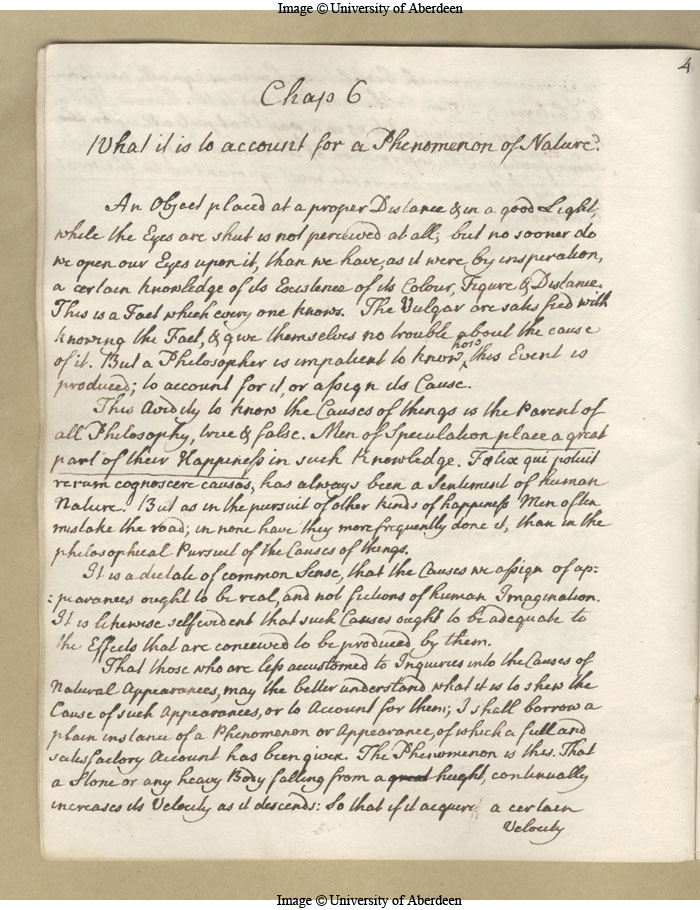 Image © University of Aberdeen
4
Chap 6
What it is to account for a Phenomenon of Nature?
An Object placed at a proper Distance & in a good Light,
while the Eyes are shut is not perceived at all; but no sooner do
we open our Eyes upon it, than we have, as it were by inspiration,
a certain knowledge of its Existence of its Colour, Figure & Distance.
This is a Fact which every one knows. The Vulgar are satisfied with
knowing the Fact, & give themselves no trouble about the cause
of it. But a Philosopher is impatient to know how this Event is
produced; to account for it, or assign its Cause.
This Avidity to know the Causes of things is the Parent of
all Philosophy, true & false. Men of Speculation place a great
part of their Happiness in such Knowledge. Felix qui potuit
rerum cognoscere causas, has always been a Sentiment of human
Nature. But as in the pursuit of other kinds of happiness Men often
mistake the road; in none have they more frequently done it, than in the
philosophical Pursuit of the Causes of things.
It is a dictate of common Sense, that the Causes we assign of ap:
:pearances ought to be real, and not fictions of human Imagination.
It is likewise selfevident that such Causes ought to be adequate to
the Effects that are conceived to be produced by them.
That those who are less accustomed to Inquiries into the Causes of
Natural Appearances, may the better understand what it is to shew the
Cause of such Appearances, or to Account for them; I shall borrow a
plain instance of a Phenomenon or Appearance, of which a full and
satisfactory Account has been given. The Phenomenon is this. That
a Stone or any heavy Body falling from a great height, continually
increases its Velocity as it descends: So that if it acquire a certain
Velocity
Image © University of Aberdeen